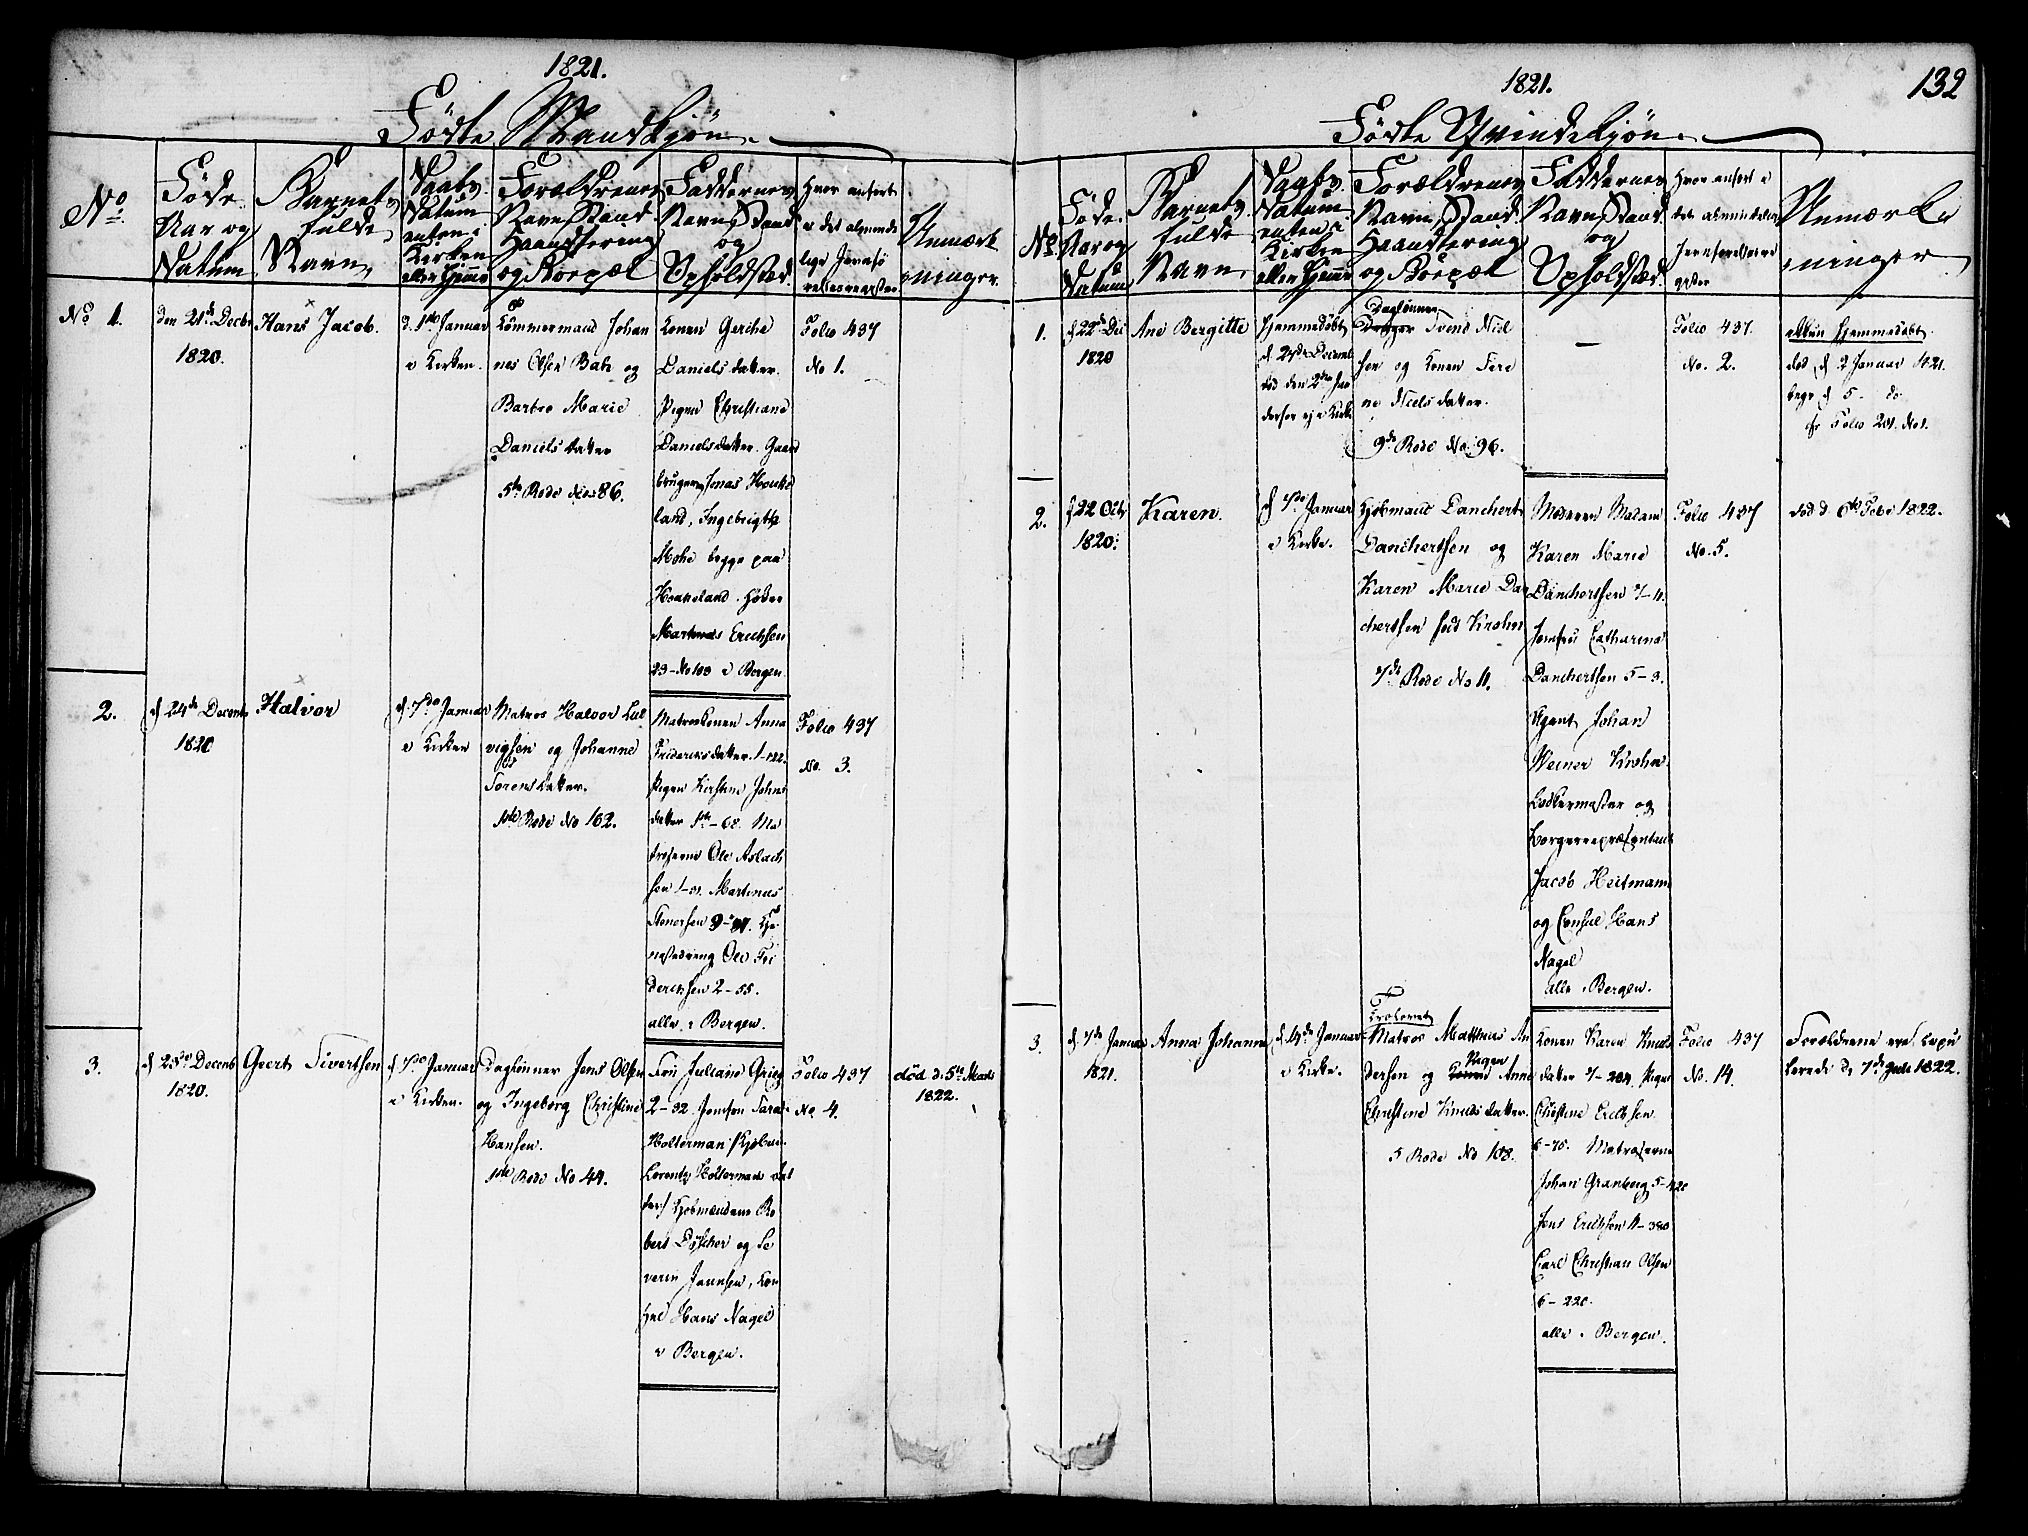 1821.
Fødte Mandkjøn.
No
Føde
Aar og
Datum
Barnets
fulde
Navn
Daabs
Datum
enten i
Kirken
eller Hjemme
Forældrenes
Navn, Stand
Haandtering
og Boepæl
Faddernes
Navn, Stand
og
Opholdsted.
Hvor anført
i det alminde
lige Jevnfø
relsesregister
Anmærk
ninger.
No 1.
den 21de Decbr
1820.
Hans Jacob.
d. 1ste Januar
i Kirken.
Tømmermand Johan
nes Olsen Batz og
Bartro Marie
Daniels datter
5te Rode No 86.
Konen Gerche
Danielsdatter.
Pigen Christiane
Danielsdatter. Gaard
brugerne Jonas Houke
land, Ingebrigt
Mohe begge paa
Houkeland.
Martinus Erichsen
23-No 100 i Bergen
Folio 437
No 1.
2.
d 24de Decemb
1820
Halvor
d. 7de Januar
i Kirken
Matros Halvor Lud
vigsen og Johanne
Sørensdatter.
1ste Rode No 162.
Matroskonen Anna
Fridericsdatter. 1-122.
Pigen Kirstine Johns
datter 1ste-68. Ma
troserne Ole Aslach
sen 1-31. Martinus
Stenersen 9-91.
Ole Fri
derichsen 2-55.
alle i Bergen.
Folio 437
No. 3.
3.
d 25de Decemb
1820.
Geert Sivertsen
d 7de Januar
i Kirken.
Daglønner Jens Olsen
og Ingeborg Christine
Hansen.
1ste Rode No 44.
Fru Juliane Grieg
2-32. Jomfru Sara
Holterman Kjøbm.
Lorentz Holterman
Kjøbmændene Ro
bert Döscher og Se
verin Jannsen, Con
sul Hans Nagel
i Bergen.
Folio 437
No 4.
død d. 5te Marts
1822.
1821.
132
Fødte Qvindekjøn.
No
Føde
Aar og
Datum
Barnets
fulde
Navn
Daabs
Datum
enten i
Kirken
eller Hjemme
Forældrenes
Navn, Stand
Haandtering
og Boepæl
Faddernes
Navn, Stand
og
Opholdsted.
Hvor anført i
det almindelige
Jevnførelsesre
gister
Anmærk
ninger
1.
d 22de Dec
1820
Ane Bergitte
Hjemmedøbt
d 24de Decemb
død den 2den Jan
derfor ej i Kirke
Daglønner
Svend Niel
sen og Konen Sere
ne Nielsdatter.
9de Rode No. 96.
—
Folio 437.
No. 2.
Hjemmedøbt.
død d 2 Januar 1821.
begr. d 5. do
Folio 201. No 1.
2.
d 22 Octb
1820.
Karen.
d 7de Januar
i Kirke.
Kjøbmand Danchert
Danchertsen og
Karen Marie Dan
chertsen født Krohn
7de Rode No 11.
Moderen Madam
Karen Marie
Danchertsen 7-11.
Jomfru Catharina
Danchertsen 5-3.
Agent Johan
Weiner Krohn.
Lodtermester og
borgerrepræsentant
Jacob Heitmann
og Consul Hans
Nagel
alle i Bergen.
Folio 437
No. 5.
død d 6te Febr 1822.
3.
d 7de Januar
1821.
Anna Johanna
d 14de Januar
i Kirke.
Trolovet
Matros Matthias An
dersen og Pigen Anne
Christine Knudsdatter.
5 Rode No 108.
Konen Karen Knuds
datter 7-204. Pigen
Christine Erichsen
6-75. Matroserne
Johan Granberg 5-
Jens Erichsen 11-380
Carl Christian Olsen
6-220.
alle i Bergen.
Folio 437
No. 14.
Forældrene ere Copu
lerede d. 7de Juli 1822.